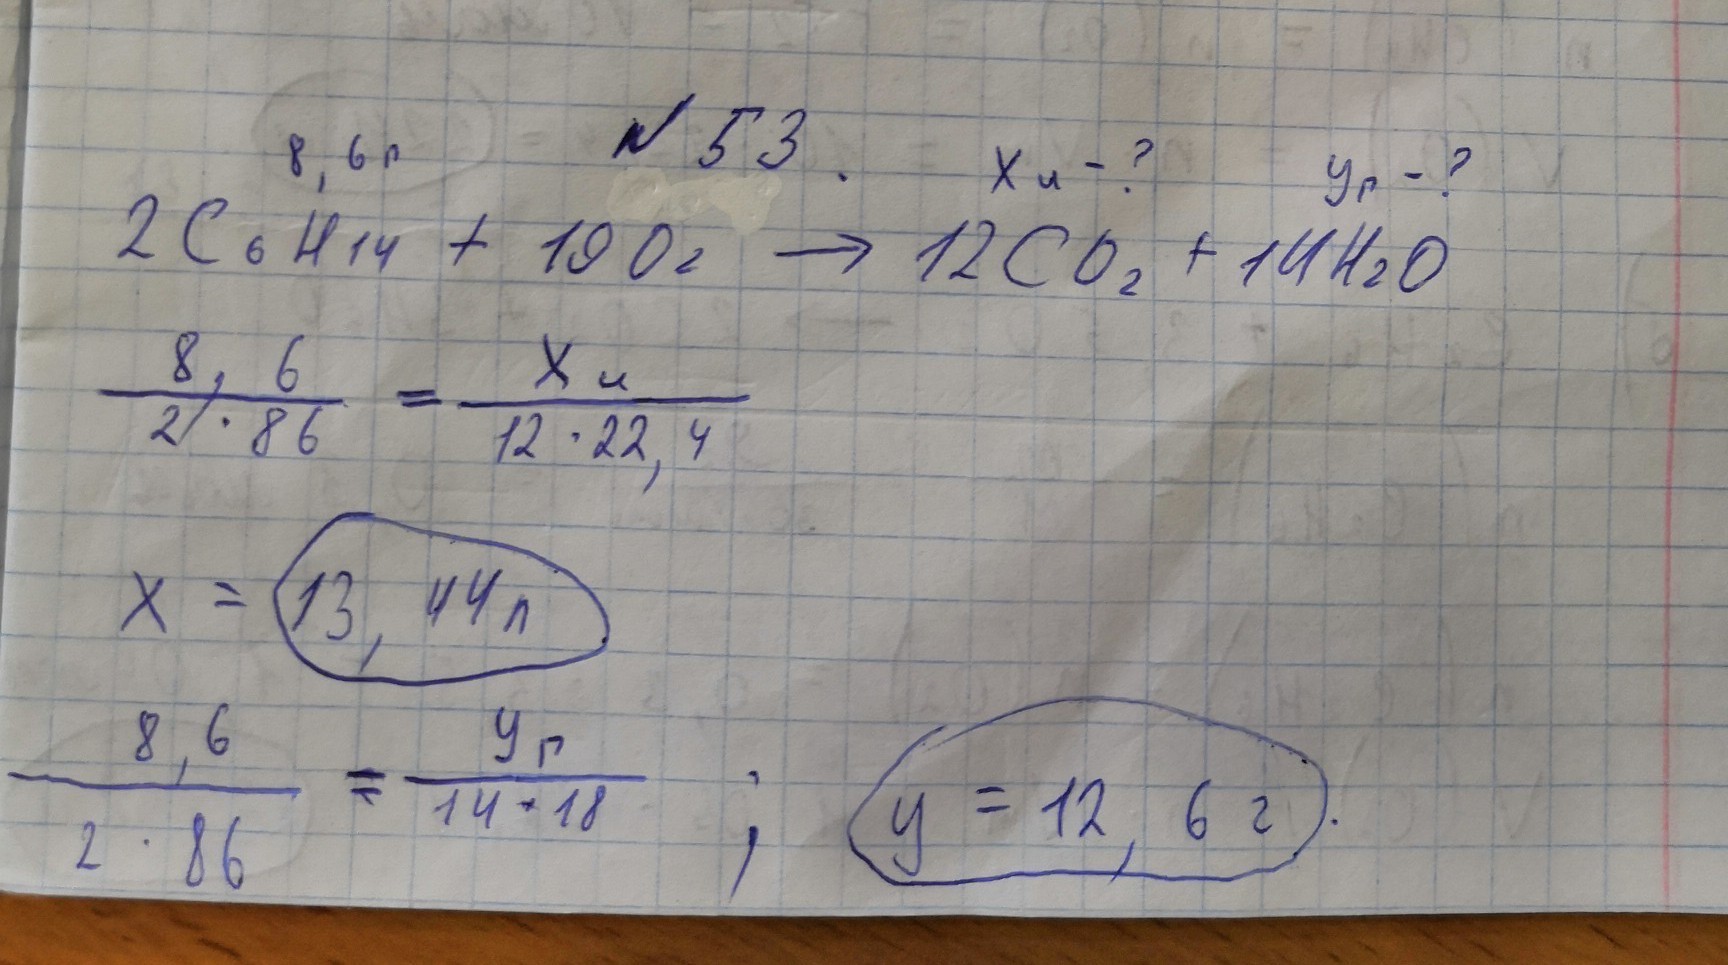 N 53.
8,6г Xл - ? Yг - ?
2C6H14 + 19O2 → 12CO2 + 14H2O
8,6 / 2·86 = Xл / 12·22,4
X = 13,44л
8,6 / 2·86 = Yг / 14·18 ; y = 12,6 г.